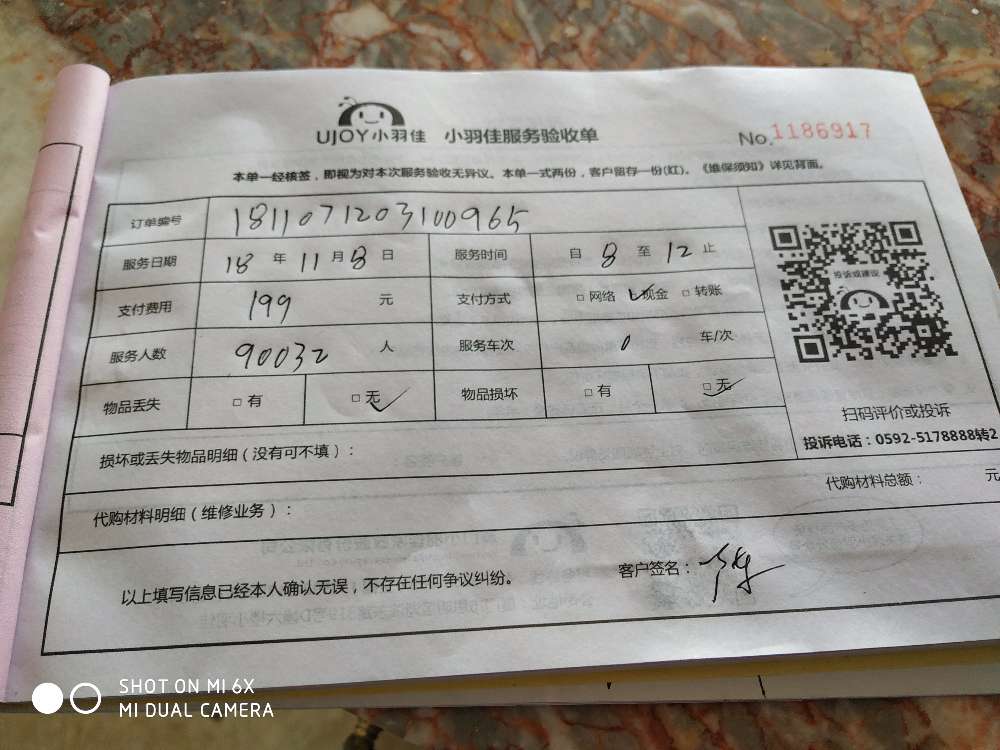 UJOY小羽佳 小羽佳服务验收单 No.1186917
本单一经核签，即视为对本次服务验收无异议。本单一式两份，客户留存一份(红)。《维保须知》详见背面。
订单编号 1811071203100965
服务日期 18 年 11 月 8 日 服务时间 自 8 至 12 止
支付费用 199 元 支付方式 □网络 ☑现金 □转账
服务人数 90032 人 服务车次 0 车/次
物品丢失 □有 □无✓ 物品损坏 □有 □无✓
投诉或建议
扫码评价或投诉
投诉电话：0592-5178888转2
损坏或丢失物品明细（没有可不填）：
代购材料明细（维修业务）： 代购材料总额： 元
以上填写信息已经本人确认无误，不存在任何争议纠纷。 客户签名：
SHOT ON MI 6X
MI DUAL CAMERA